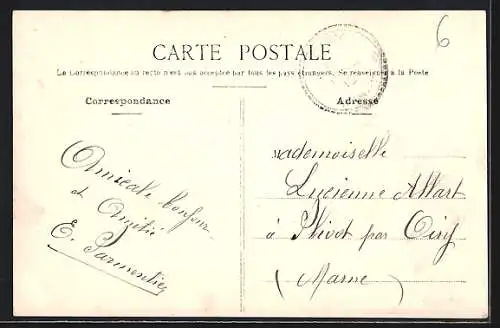 6
CARTE POSTALE
La Correspondance au recto n'est pas acceptée par tous les pays étrangers. Se renseigner à la Poste
Correspondance
Adresse
Amicale bonjour
et Amitié
E. Parmentier
Mademoiselle
Lucienne Allart
à Plivot par Oiry
(Marne)